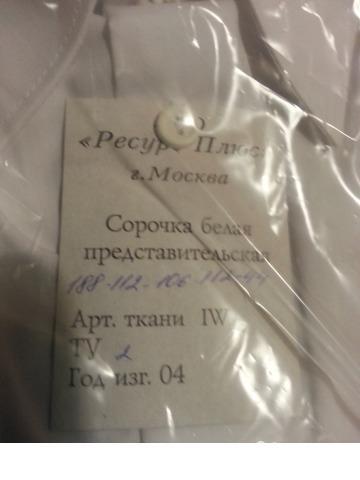 «Ресурс Плюс»
г.Москва
Сорочка белая
представительская
188-112-106-112-44
Арт. ткани IW
TV 2
Год изг. 04